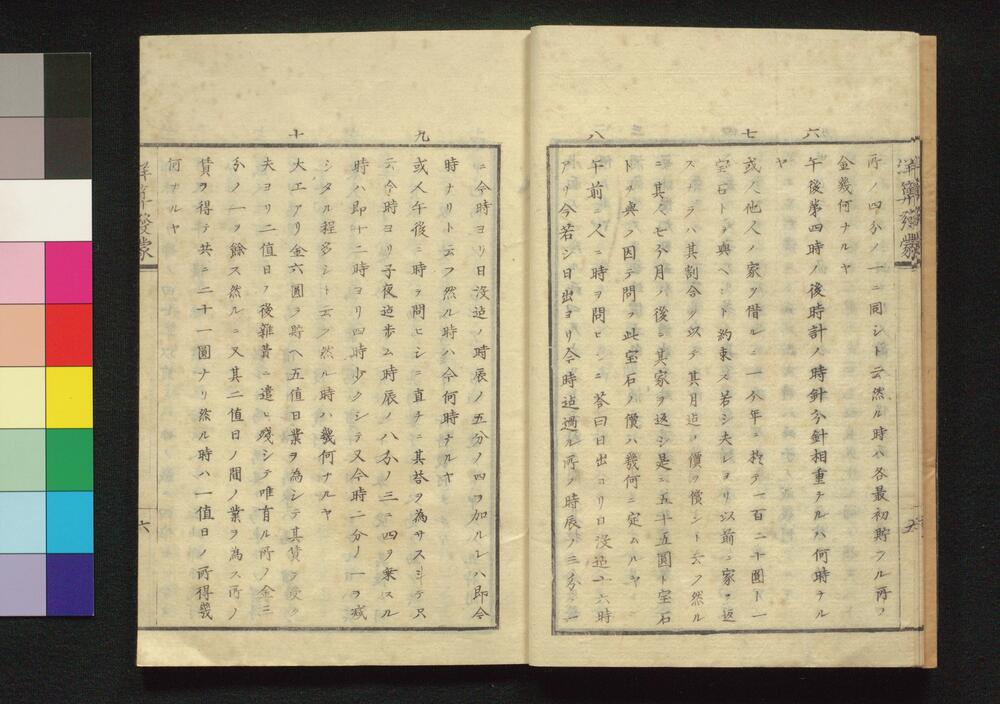 洋算發蒙
所ノ四分ノ一ニ同シト云然ル時ハ各最初貯フル所ノ
金幾何ナルヤ
六
午後第四時ノ後時計ノ時針分針相重ナルハ何時ナル
ヤ
七
或人他人ノ家ヲ借ルニ一ケ年ニ持テ一百二十圓ト一
宝石トヲ與ヘント約束ス若シ夫レヨリ以前ニ家ヲ返
スナラハ其割合ヲ以テ其月迠ノ價ヲ償シト云フ然ル
ニ其人七ケ月ノ後ニ其家ヲ返シ是ニ五十五圓ト宝石
トヲ與ノ因テ問フ此宝石ノ價ハ幾何ニ定ムルヤ
八
午前ニ人ニ時ヲ問ヒシニ答曰日出ヨリ日没迠十六時
アリ今若シ日出ヨリ今時迠過ル所ノ時辰ノ三分ノ一
五
ニ今時ヨリ日没迠ノ時辰ノ五分ノ四ヲ加ルレハ即今
時ナリト云フ然ル時ハ今何時ナルヤ
九
或人午後ニ時ヲ問ヒシニ直チニ其答ヲ為サスシテ只
云今時ヨリ子夜迠歩ム時辰ノ八分ノ三ニ四ヲ乗スル
時ハ即十二時ヨリ四時少クシテ又今時二分ノ一ヲ减
シタル程多シト云フ然ル時ハ幾何ナルヤ
十
大工アリ金六圓ヲ貯ヘ五値日業ヲ為シテ其賃ヲ受ク
夫ヨリ二値日ノ後雜費ニ遣ヒ残シテ唯有ル所ノ金三
分ノ一ヲ餘ス然ルニ又其二値日ノ間ノ業ヲ為ス所ノ
賃ヲ得テ共ニ二十一圓ナリ然ル時ハ一値日ノ所得幾
何ナルヤ
洋算發蒙
六